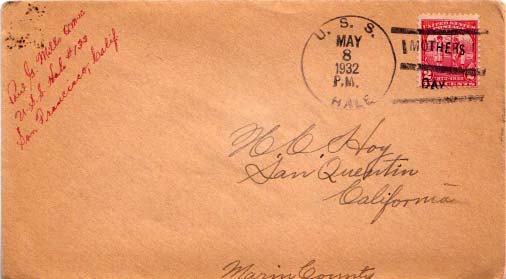 Paul G. Mills
U.S.S. Hale #133
San Francisco, Calif
U. S. S.
MAY
8
1932
P.M.
HALE
MOTHERS
DAY
UNITED STATES
2 CENTS 2
M. C. Hoy
San Quentin
California
Marin County